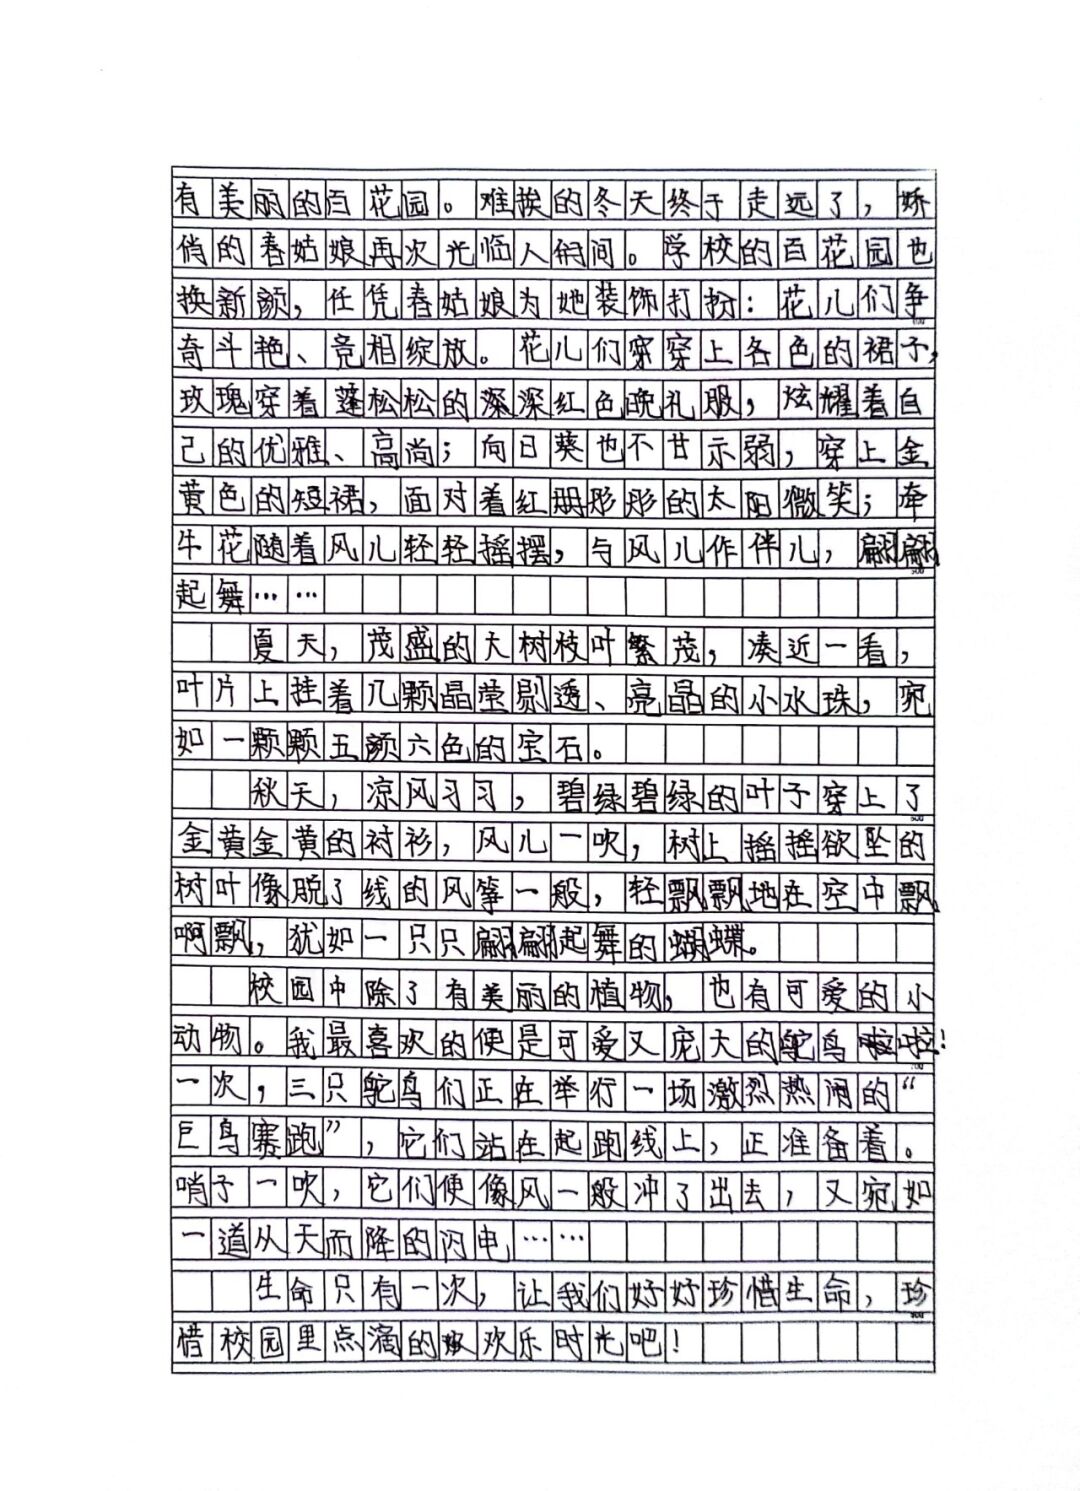 有美丽的百花园。难挨的冬天终于走远了，娇
俏的春姑娘再次光临人间。学校的百花园也
换新颜，任凭春姑娘为她装饰打扮：花儿们争
奇斗艳、竞相绽放。花儿们穿穿上各色的裙子，
玫瑰穿着蓬松松的深深红色晚礼服，炫耀着自
己的优雅、高尚；向日葵也不甘示弱，穿上金
黄色的短裙，面对着红彤彤的太阳微笑；牵
牛花随着风儿轻轻摇摆，与风儿作伴儿，翩翩
起舞……
夏天，茂盛的大树枝叶繁茂，凑近一看，
叶片上挂着几颗晶莹剔透、亮晶的小水珠，宛
如一颗颗五颜六色的宝石。
秋天，凉风习习，碧绿碧绿的叶子穿上了
金黄金黄的衬衫，风儿一吹，树上摇摇欲坠的
树叶像脱了线的风筝一般，轻飘飘地在空中飘
啊飘，犹如一只只翩翩起舞的蝴蝶。
校园中除了有美丽的植物，也有可爱的小
动物。我最喜欢的便是可爱又庞大的鸵鸟啦！
一次，三只鸵鸟们正在举行一场激烈热闹的“
巨鸟赛跑”，它们站在起跑线上，正准备着。
哨子一吹，它们便像风一般冲了出去，又宛如
一道从天而降的闪电……
生命只有一次，让我们好好珍惜生命，珍
惜校园里点滴的欢乐时光吧！